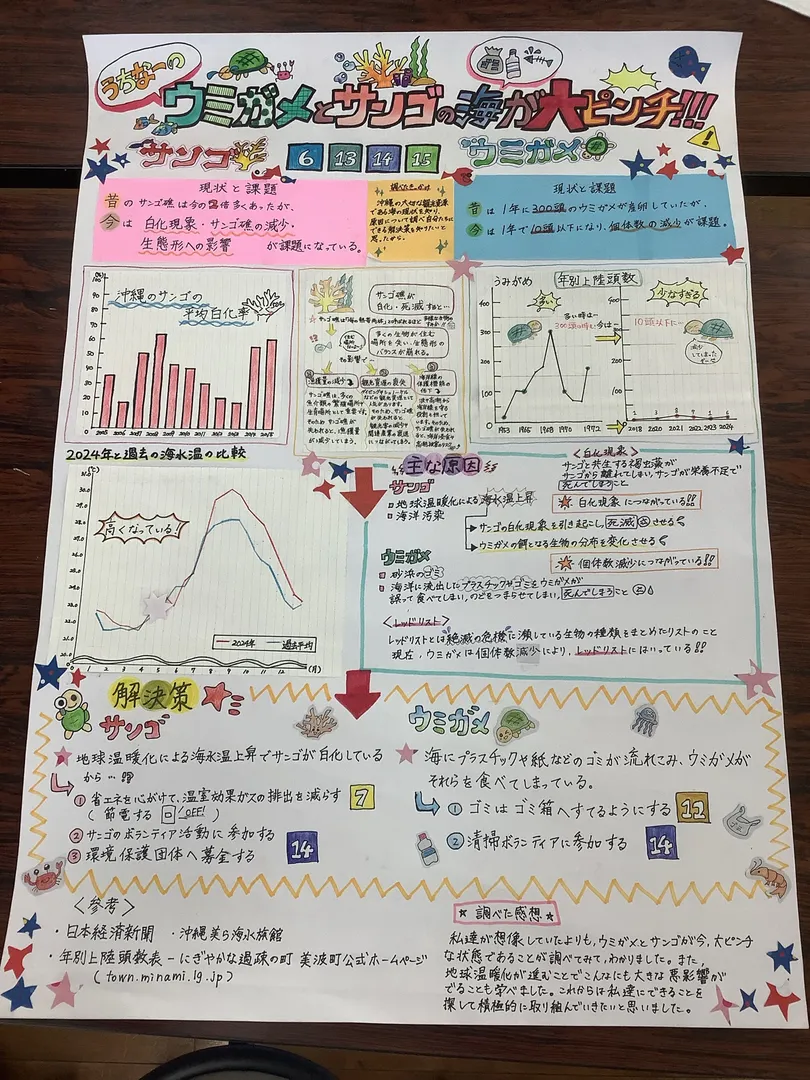 うちなーの
ウミガメとサンゴの海が大ピンチ!!!
サンゴ
6 13 14 15
ウミガメ
現状と課題
昔のサンゴ礁は今の2倍多くあったが、
今は 白化現象・サンゴの減少・
生態形への影響 が課題になっている。
調べたきっかけ
沖縄の大切な観光資源
である海の現状を知り、
原因について調べ自分たちに
できる解決策を知りたいと
思ったから。
現状と課題
昔は1年に300頭のウミガメが産卵していたが、
今は1年で10頭以下になり、個体数の減少が課題。
(%)
沖縄のサンゴの
平均白化率
100
90
80
70
60
50
40
30
20
10
サンゴ礁が
白化・死滅すると…
多くの生物が住む
場所を失い、生態形の
バランスが崩れる。
の影響で
漁獲量の減少
観光資源の喪失
うみがめ
年別上陸頭数
多い
多い時は…
300頭の時も
今は…
少なすぎる
10頭以下に…
400
300
200
100
1953 1965 1968 1970 1972
400
300
200
100
2018 2020 2021 2022 2023 2024
2024年と過去の海水温の比較
(℃)
高くなっている!
2024年 過去平均
1 2 3 4 5 6 7 8 9 10 11 12 (月)
主な原因
サンゴ
地球温暖化による海水温上昇
海洋汚染
<白化現象>
サンゴと共生する褐虫藻が
サンゴから離れてしまい、サンゴが栄養不足で
死んでしまうこと
白化現象につながっている!!
サンゴの白化現象を引き起こし、死滅させる
ウミガメの餌となる生物の分布を変化させる
個体数減少につながっている!!
ウミガメ
砂浜のゴミ
海洋に流出したプラスチックやゴミをウミガメが
誤って食べてしまい、のどをつまらせてしまい、死んでしまうこと
<レッドリスト>
レッドリストとは絶滅の危機に瀕している生物の種類をまとめたリストのこと
現在、ウミガメは個体数減少により、レッドリストにはいっている!!
解決策
サンゴ
地球温暖化による海水温上昇でサンゴが白化している
から…
① 省エネを心がけて、温室効果ガスの排出を減らす 7
(節電する OFF!)
② サンゴのボランティア活動に参加する
③ 環境保護団体へ募金する 14
ウミガメ
海にプラスチックや紙などのゴミが流れこみ、ウミガメが
それらを食べてしまっている。
① ゴミはゴミ箱へすてるようにする 11
② 清掃ボランティアに参加する 14
<参考>
・日本経済新聞 ・沖縄美ら海水族館
・年別上陸頭数表-にぎやかな過疎の町 美波町公式ホームページ
(town.minami.lg.jp)
調べた感想
私達が想像していたよりも、ウミガメとサンゴが今、大ピンチ
な状態であることが調べてみて、わかりました。また、
地球温暖化が進むことでこんなにも大きな悪影響が
でることも学べました。これからは私達にできることを
探して積極的に取り組んでいきたいと思いました。